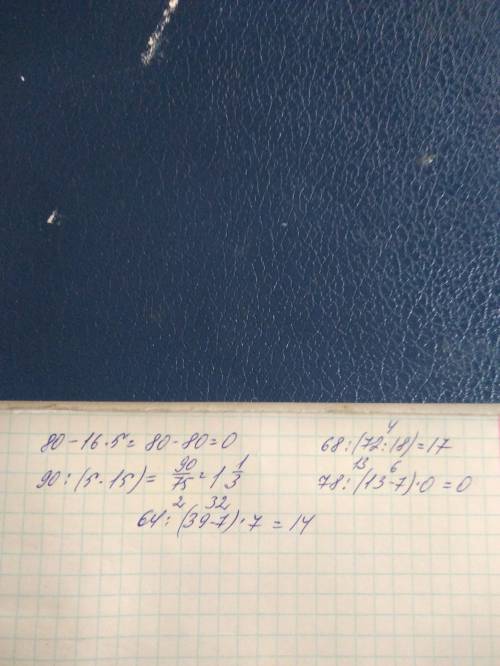 80 - 16 · 5 = 80 - 80 = 0
90 : (5 · 15) = 90/75 = 1 1/3
2 32
64 : (39 - 7) · 7 = 14
4
68 : (72 : 18) = 17
13 6
78 : (13 - 7) · 0 = 0